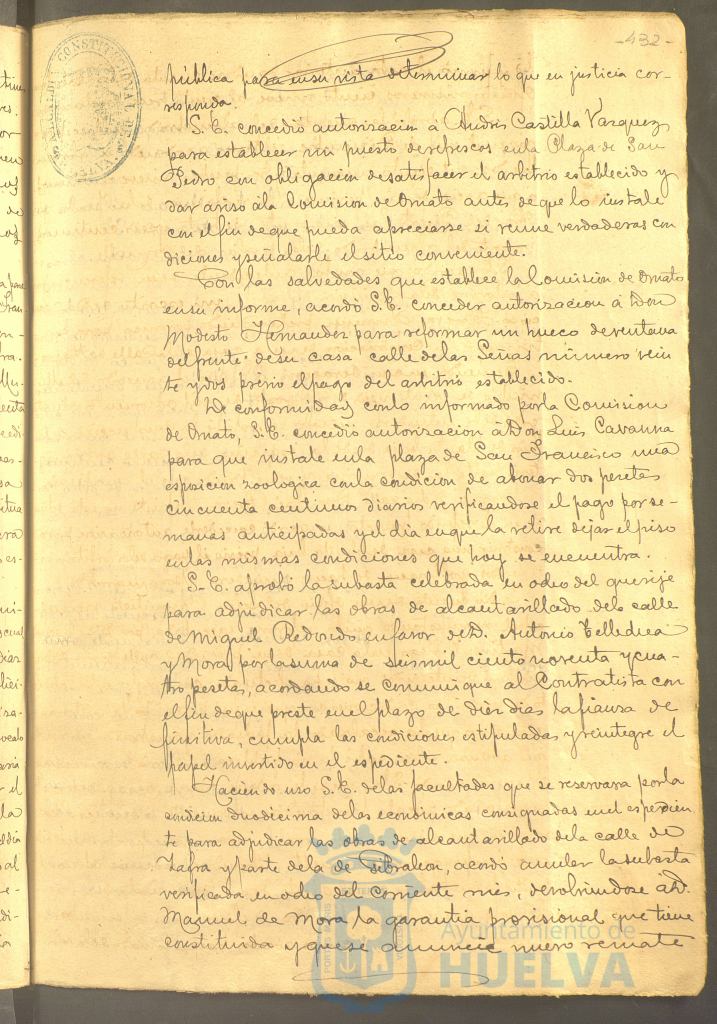 -432-
CONSTITUCIONAL
pública para en su vista determinar lo que en justicia cor-
responda.
S. E. concedió autorizacion á Andrés Castilla Vazquez
para establecer un puesto de refrescos en la Plaza de San
Pedro con obligacion de satisfacer el arbitrio establecido y
dar aviso á la Comision de Ornato antes de que lo instale
con el fin de que pueda apreciarse si reune verdaderas con
diciones y señalarle el sitio conveniente.
Con las salvedades que establece la Comision de Ornato
en su informe, acordó S. E. conceder autorizacion á Don
Modesto Hernandez para reformar un hueco de ventana
del frente de su casa calle de las Señas número vein
te y dos prévio el pago del arbitrio establecido.
De conformidad con lo informado por la Comision
de Ornato, S. E. concedió autorizacion á Don Luis Cavanna
para que instale en la plaza de San Francisco una
esposicion zoologica con la condicion de abonar dos pesetas
cincuenta centimos diarios verificandose el pago por se-
manas anticipadas y el dia en que la retire dejar el piso
en las mismas condiciones que hoy se encuentra.
S. E. aprobó la subasta celebrada en ocho del que rije
para adjudicar las obras de alcantarillado de la calle
de Miguel Redondo en favor de D. Antonio
y Mora por la suma de seis mil ciento noventa y cua-
tro pesetas, acordando se comunique al Contratista con
el fin de que preste en el plazo de diez dias la fianza de
finitiva, cumpla las condiciones estipuladas y reintegre el
papel invertido en el espediente.
Haciendo uso S. E. de las facultades que se reservara por la
condicion duodecima de las económicas consignadas en el espedien
te para adjudicar las obras de alcantarillado de la calle de
Zafra y parte de la de Gibraleon, acordó anular la subasta
verificada en ocho del corriente mes, devolviendose á D.
Manuel de Mora la garantia provisional que tiene
constituida y que se anuncie nuevo remate
Ayuntamiento de
HUELVA